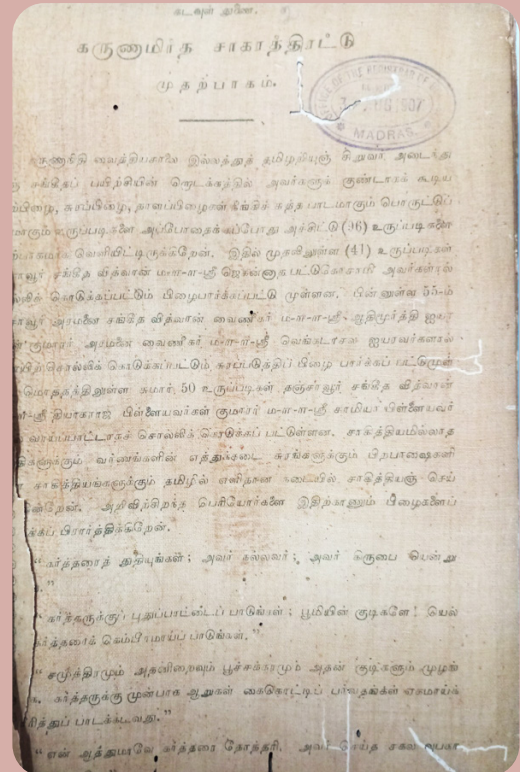 கடவுள் துணை.
கருணாமிர்த சாகரத்திரட்டு
முதற்பாகம்.
OFFICE OF THE REGISTRAR OF
1907
MADRAS
கருணாநிதி வைத்தியசாலை இல்லத்துத் தமிழறியுஞ் சிறுவர் அடைந்து
சங்கீதப் பயிற்சியின் தொடக்கத்தில் அவர்களுக் குண்டாகக் கூடிய
சுரப்பிழை, தாளப்பிழைகள் நீங்கிச் சுத்த பாடமாகும் பொருட்டுப்
உருப்படிகளை அப்போதைக்கப்போது அச்சிட்டு (96) உருப்படிகளை
வெளியிட்டிருக்கிறேன். இதில் முதலிலுள்ள (41) உருப்படிகள்
சங்கீத வித்வான் ம-ள-ள-ஸ்ரீ ஜெகன்னாத பட்டுகோசாமி அவர்களால்
கொடுக்கப்பட்டும் பிழைபார்க்கப்பட்டு முள்ளன. பின்னுள்ள 55-ம்
அரமனை சங்கீத வித்வான் வைணிகர் ம-ள-ள-ஸ்ரீ ஆதிமூர்த்தி ஐயர
குமாரர் அரமனை வைணிகர் ம-ள-ள-ஸ்ரீ வெங்கடாசல ஐயரவர்களால்
சொல்லிக் கொடுக்கப்பட்டும், சுரப்படுத்திப் பிழை பார்க்கப் பட்டுமுள்
சுமார் 50 உருப்படிகள் தஞ்சாவூர் சங்கீத வித்வான்
தியாகராஜ பிள்ளையவர்கள் குமாரர் ம-ள-ள-ஸ்ரீ சாமியா பிள்ளையவர்
வாய்ப்பாட்டாகச் சொல்லிக் கொடுக்கப் பட்டுள்ளன. சாகித்தியமில்லாத
வர்ணங்களின் எத்துக்கடை சுரங்களுக்கும் பிறபாஷைகளி
சாகித்தியங்களுக்கும் தமிழில் எளிதான நடையில் சாகித்தியஞ் செய்
அறிவிற்சிறந்த பெரியோர்களை இதிற்காணும் பிழைகளைப்
பிரார்த்திக்கிறேன்.
“கர்த்தரைத் துதியுங்கள்; அவர் நல்லவர்; அவர் கிருபை யென்று
”
கர்த்தருக்குப் புதுப்பாட்டைப் பாடுங்கள்; பூமியின் குடிகளே! யெல்
கர்த்தரைக் கெம்பீரமாய்ப் பாடுங்கள்.”
“சமுத்திரமும் அதனிறைவும் பூச்சக்கரமும் அதன் குடிகளும் முழங்
கர்த்தருக்கு முன்பாக ஆறுகள் கைகொட்டிப் பர்வதங்கள் ஏகமாய்க்
பாடக்கடவது.”
“என் ஆத்துமாவே கர்த்தரை தோத்தரி. அவர் செய்த சகல உபகா